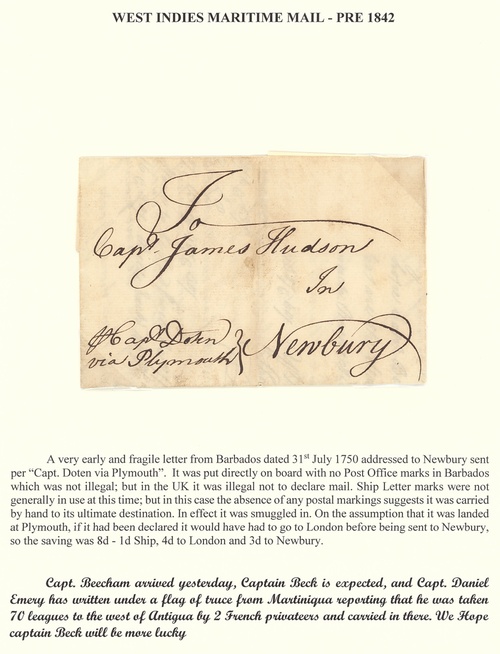 WEST INDIES MARITIME MAIL - PRE 1842
To
Capt. James Hudson
In
Newbury
⅌ Capt Doten
via Plymouth
A very early and fragile letter from Barbados dated 31st July 1750 addressed to Newbury sent
per “Capt. Doten via Plymouth”. It was put directly on board with no Post Office marks in Barbados
which was not illegal; but in the UK it was illegal not to declare mail. Ship Letter marks were not
generally in use at this time; but in this case the absence of any postal markings suggests it was carried
by hand to its ultimate destination. In effect it was smuggled in. On the assumption that it was landed
at Plymouth, if it had been declared it would have had to go to London before being sent to Newbury,
so the saving was 8d - 1d Ship, 4d to London and 3d to Newbury.
Capt. Beecham arrived yesterday, Captain Beck is expected, and Capt. Daniel
Emery has written under a flag of truce from Martiniqua reporting that he was taken
70 leagues to the west of Antigua by 2 French privateers and carried in there. We Hope
captain Beck will be more lucky